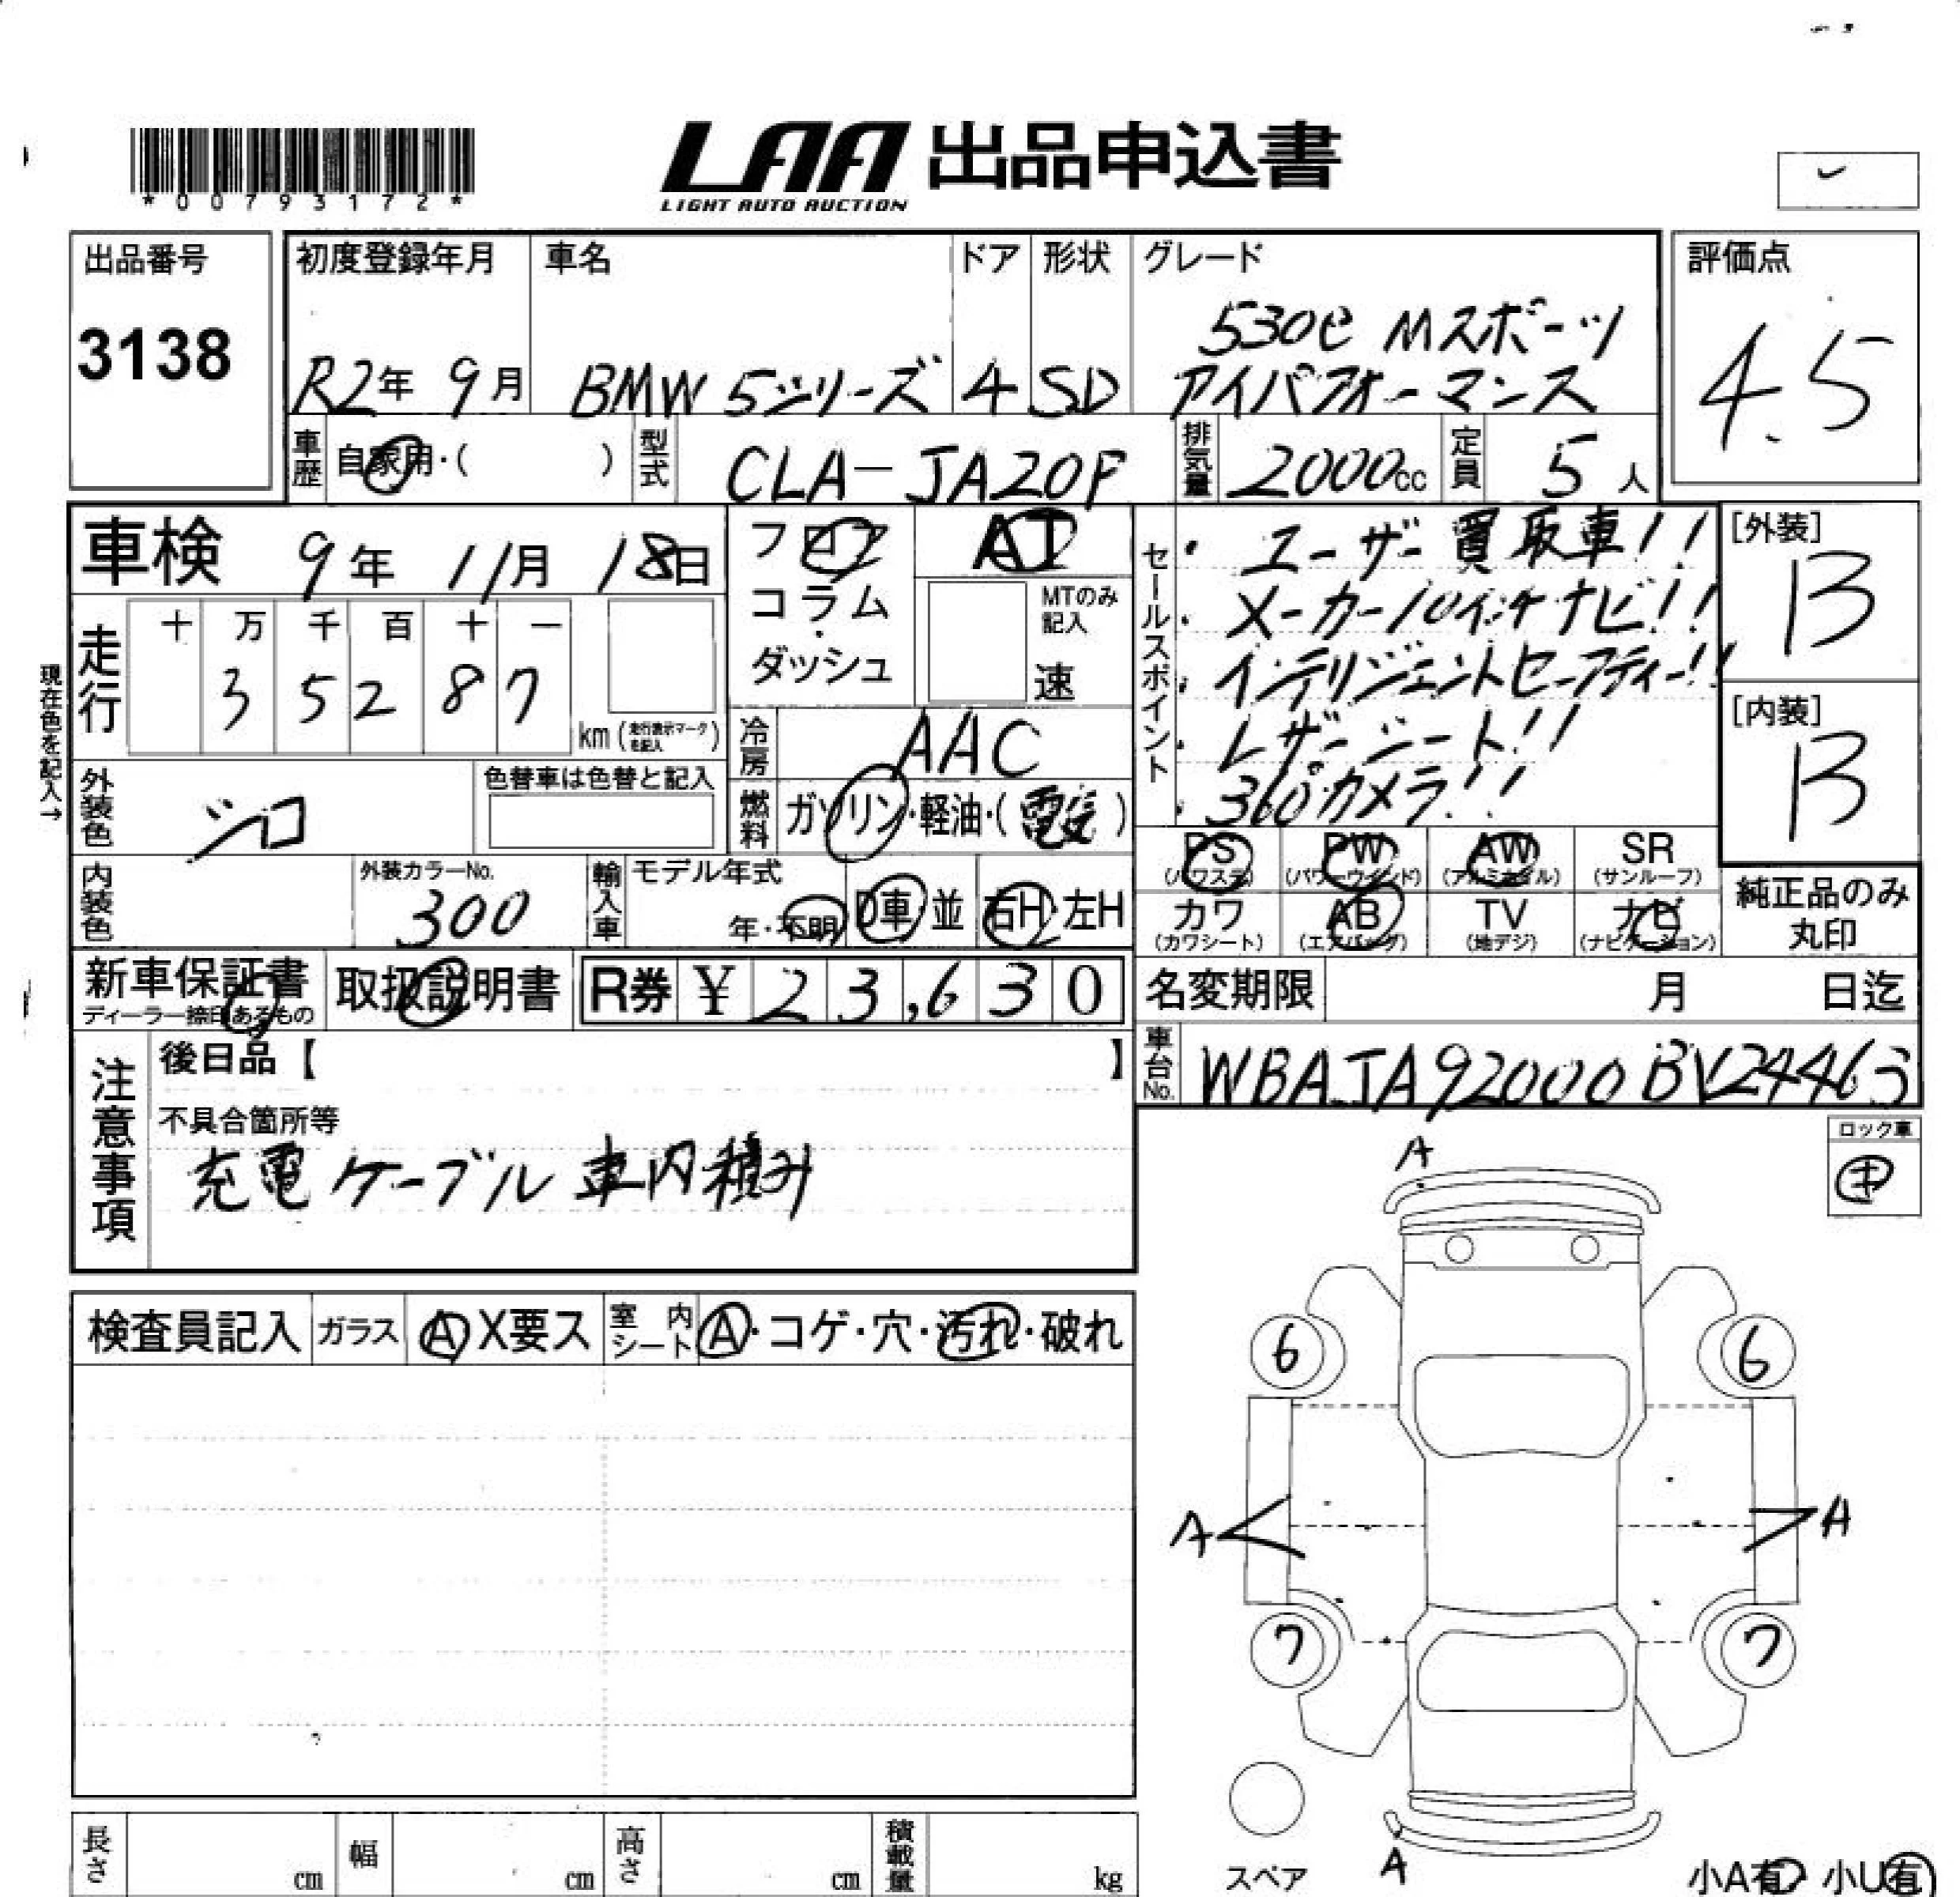 *00793172*
LAA 出品申込書
LIGHT AUTO AUCTION
出品番号
3138
初度登録年月
R2年 9月
車名
BMW 5シリーズ
ドア
4
形状
SD
グレード
530e Mスポーツ
アイパフォーマンス
評価点
4.5
車歴 自家用・( )
型式 CLA-JA20P
排気量 2000cc
定員 5人
車検 9年 11月 18日
フロア
コラム
・
ダッシュ
AT
MTのみ記入
速
セールスポイント
・ユーザー買取車!!
・メーカー10インチナビ!!
・インテリジェントセーフティー!!
・レザーシート!!
・360°カメラ!!
[外装]
B
[内装]
B
現在色を記入→
走行 十 万 千 百 十 一
3 5 2 8 7
km (走行表示マークを記入)
冷房 AAC
外装色 シロ
色替車は色替と記入
燃料 ガソリン・軽油・(電気)
内装色
外装カラーNo.
300
輸入車 モデル年式
年・不明
D車・並
右H・左H
PS (パワステ)
PW (パワーウインド)
AW (アルミホイル)
SR (サンルーフ)
カワ (カワシート)
AB (エアバッグ)
TV (地デジ)
ナビ (ナビゲーション)
純正品のみ
丸印
新車保証書
ディーラー捺印あるもの
取扱説明書
R券 ¥ 23,630
名変期限 月 日迄
車台No. WBAJA92000BV24463
注意事項
後日品【 】
不具合箇所等
充電ケーブル車内積み
ロック車
キ
検査員記入
ガラス A X要ス
室内シート A・コゲ・穴・汚れ・破れ
A
6 6
A A
7 7
A
スペア
小A有 小U有
長さ cm
幅 cm
高さ cm
積載量 kg